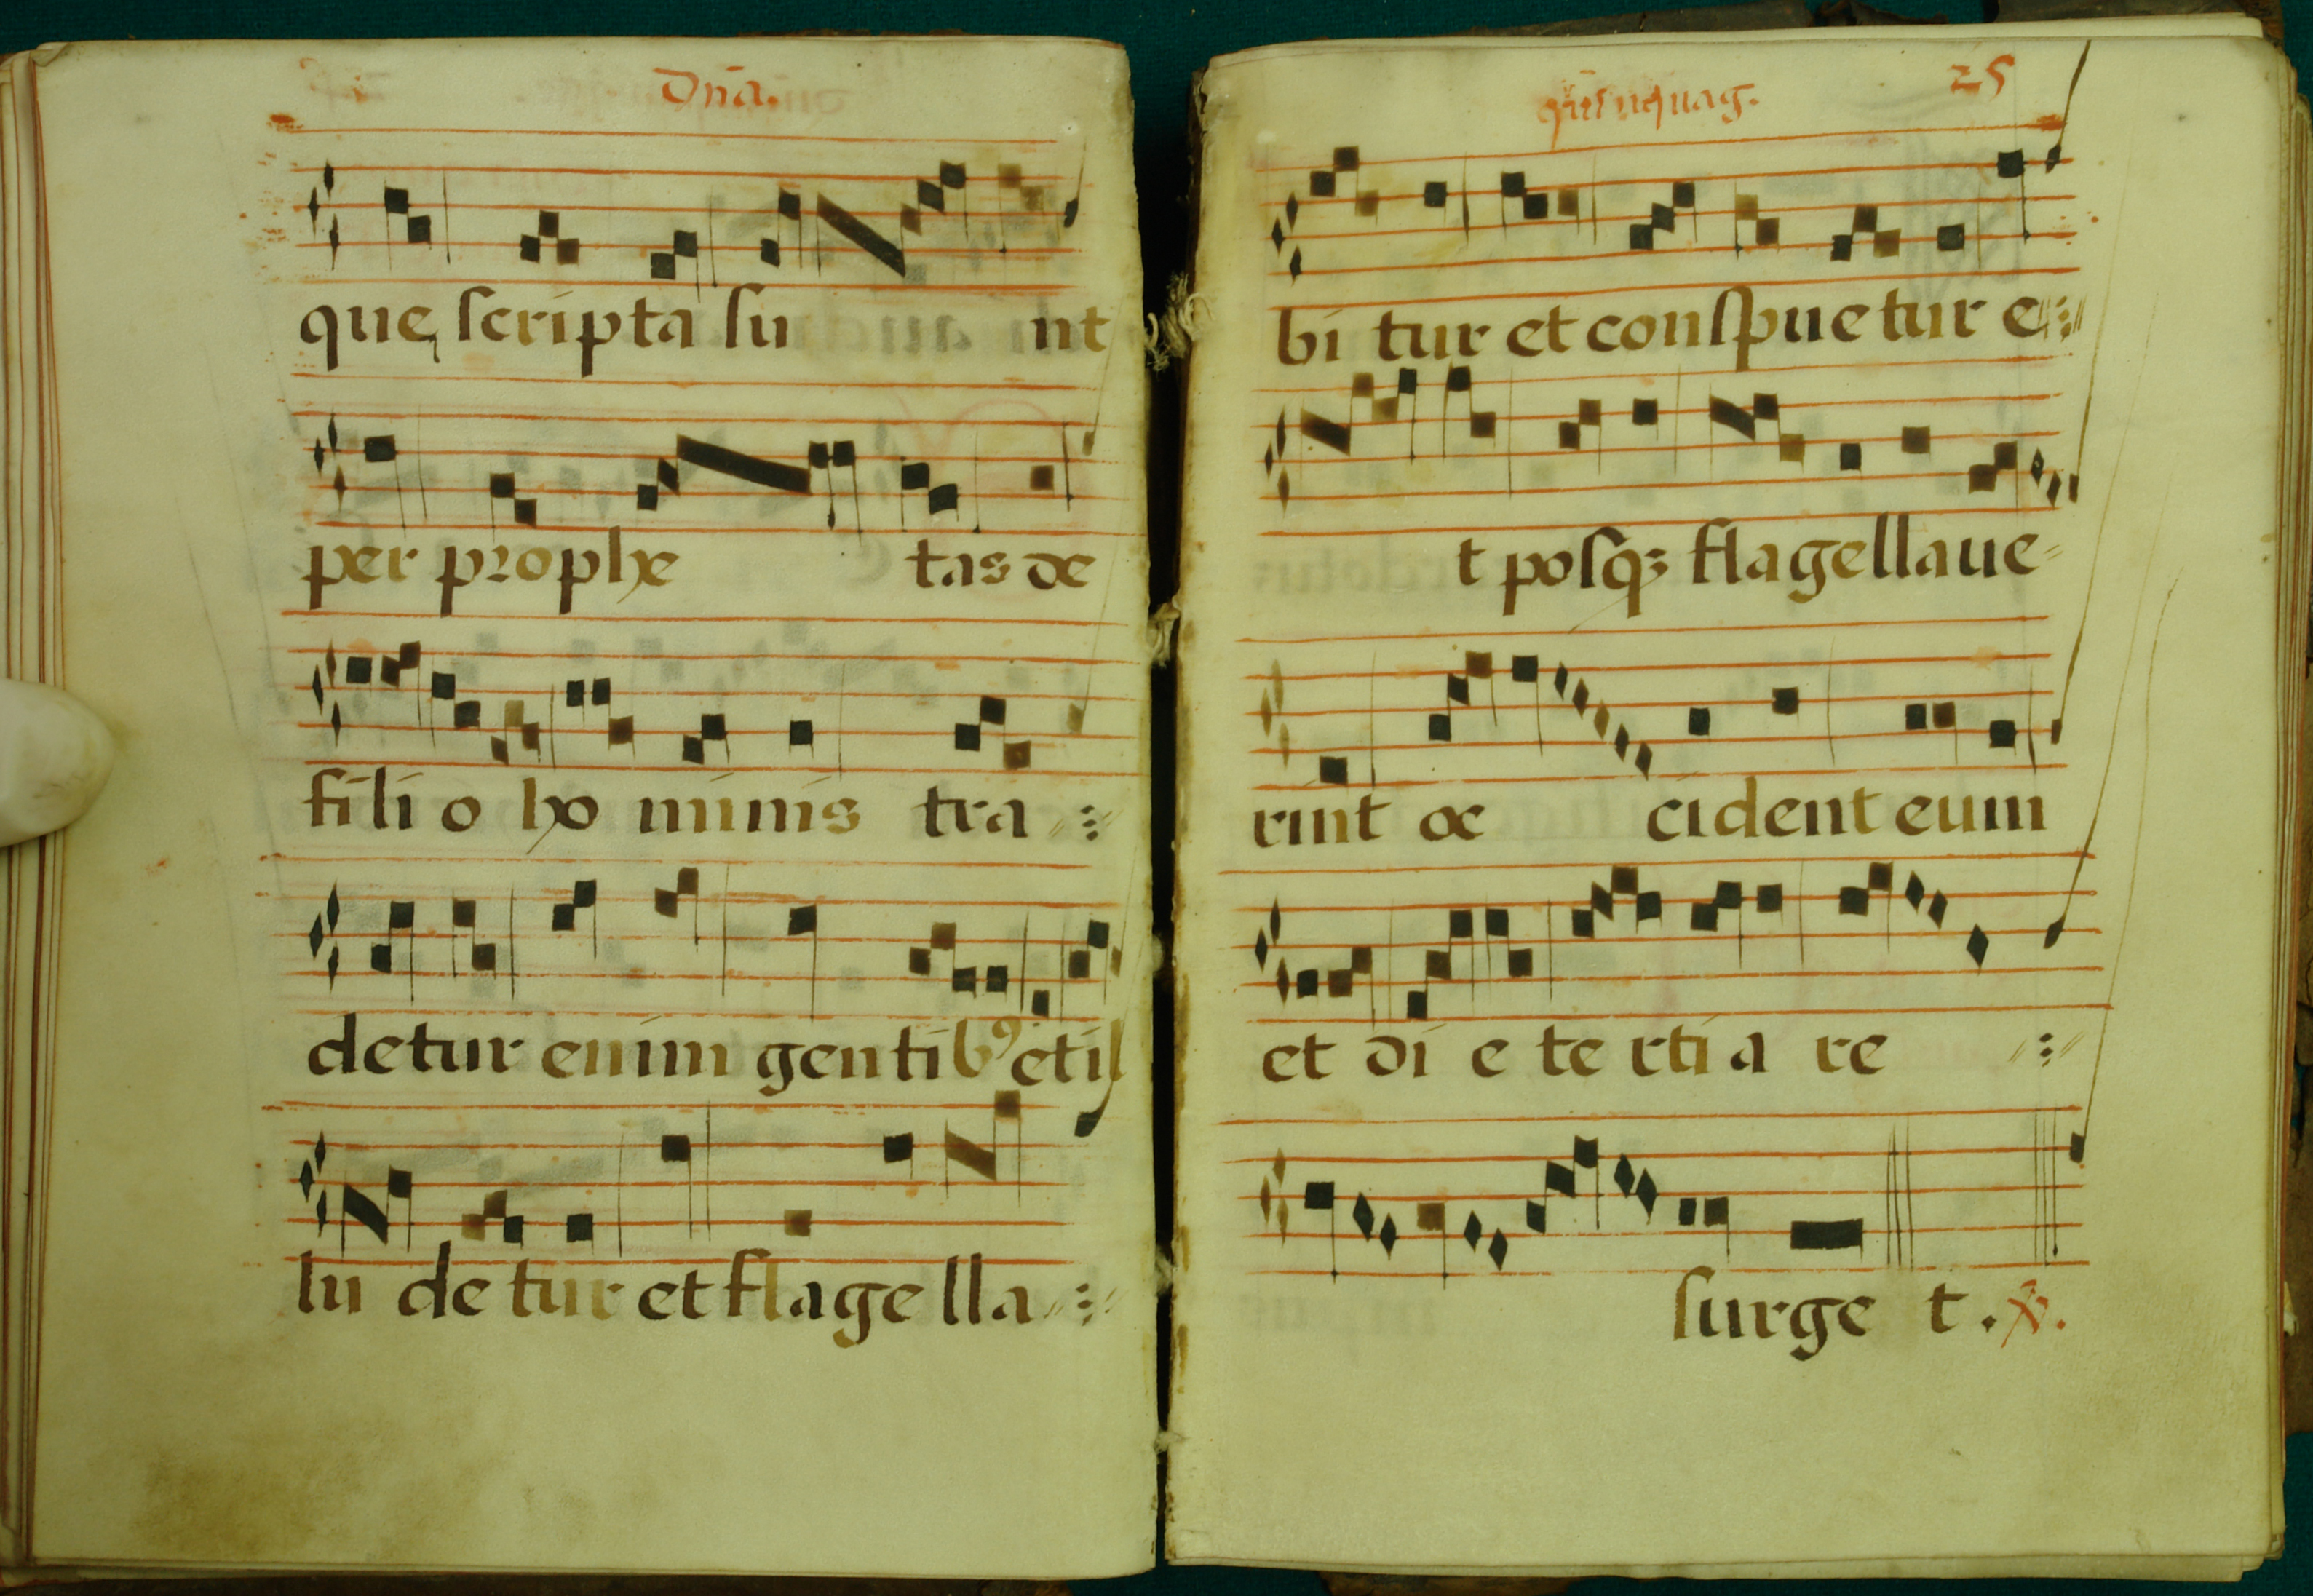 Dn̄a.
que scripta su nt
per prophe tas de
fili o ho minis tra
detur enim gentib⁹ et il
lu de tur et flagella
quinquag.
25
bi tur et conspue tur e
t posq; flagellaue
rint oc cident eum
et di e te rti a re
surge t . ℣.